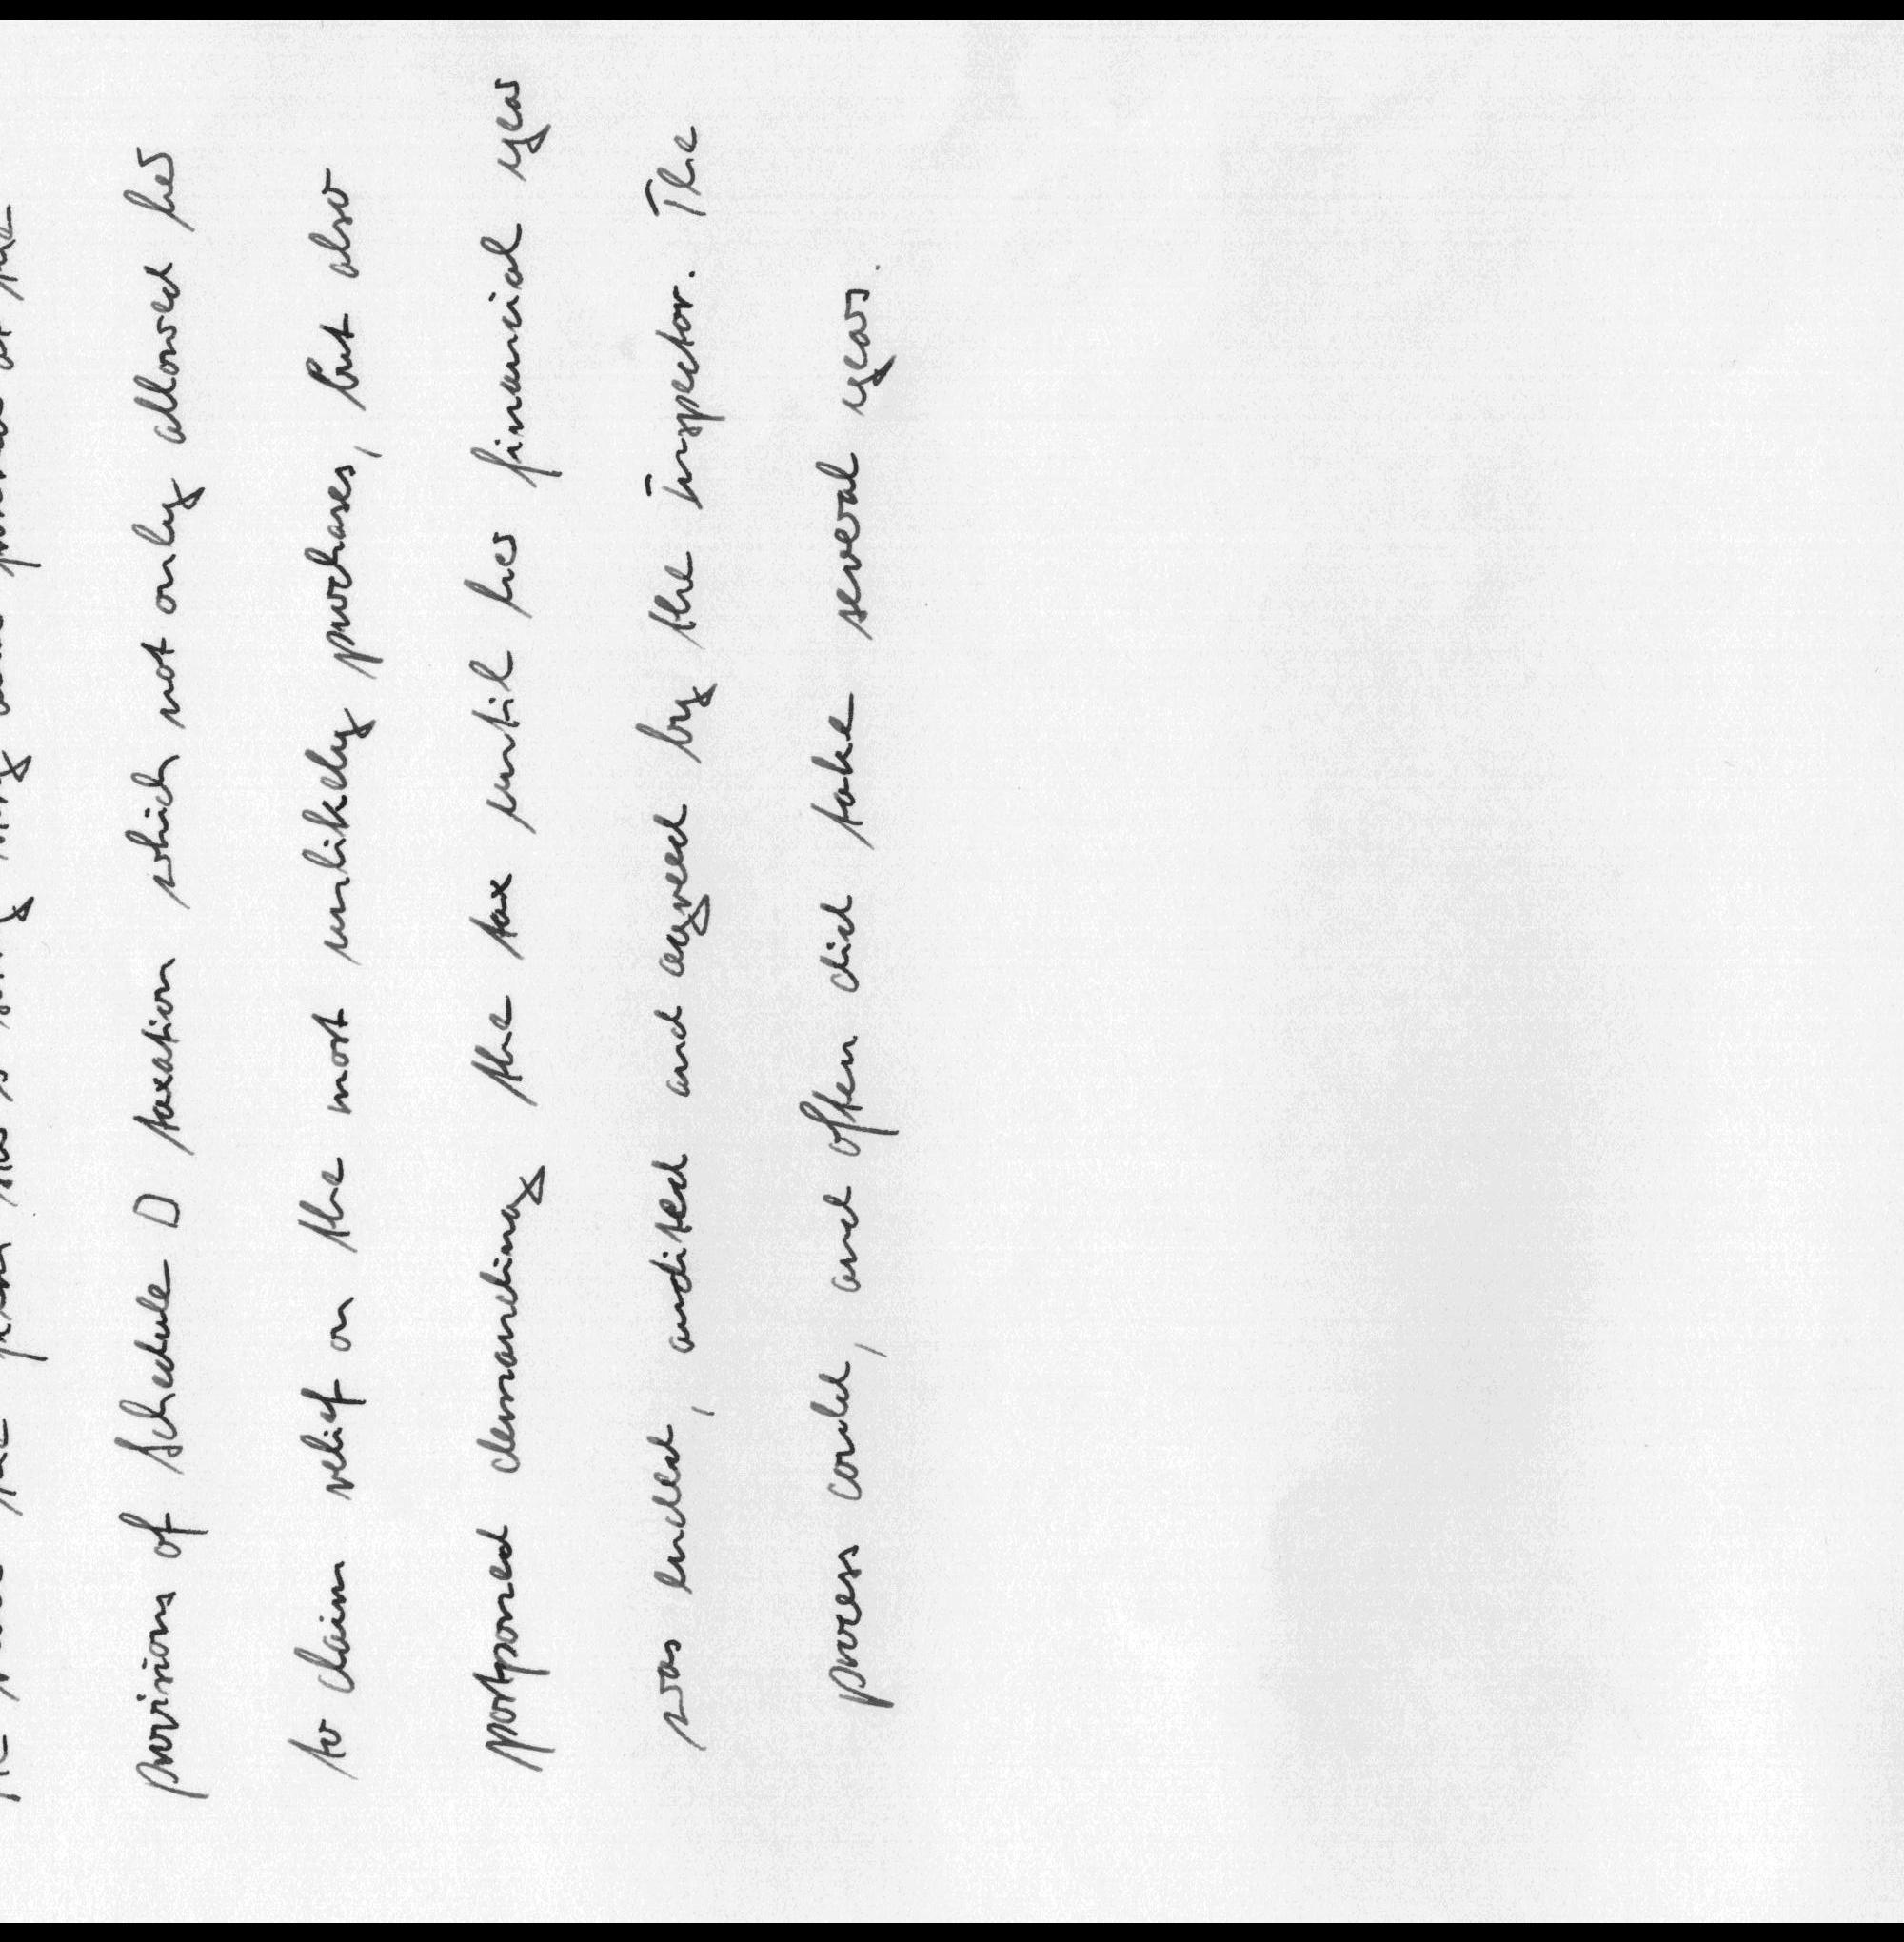 provisions of Schedule D taxation which not only allowed her
to claim relief on the most unlikely purchases, but also
postponed demanding the tax until her financial year
was ended, audited and agreed by the inspector. The
process could, and often did take several years.